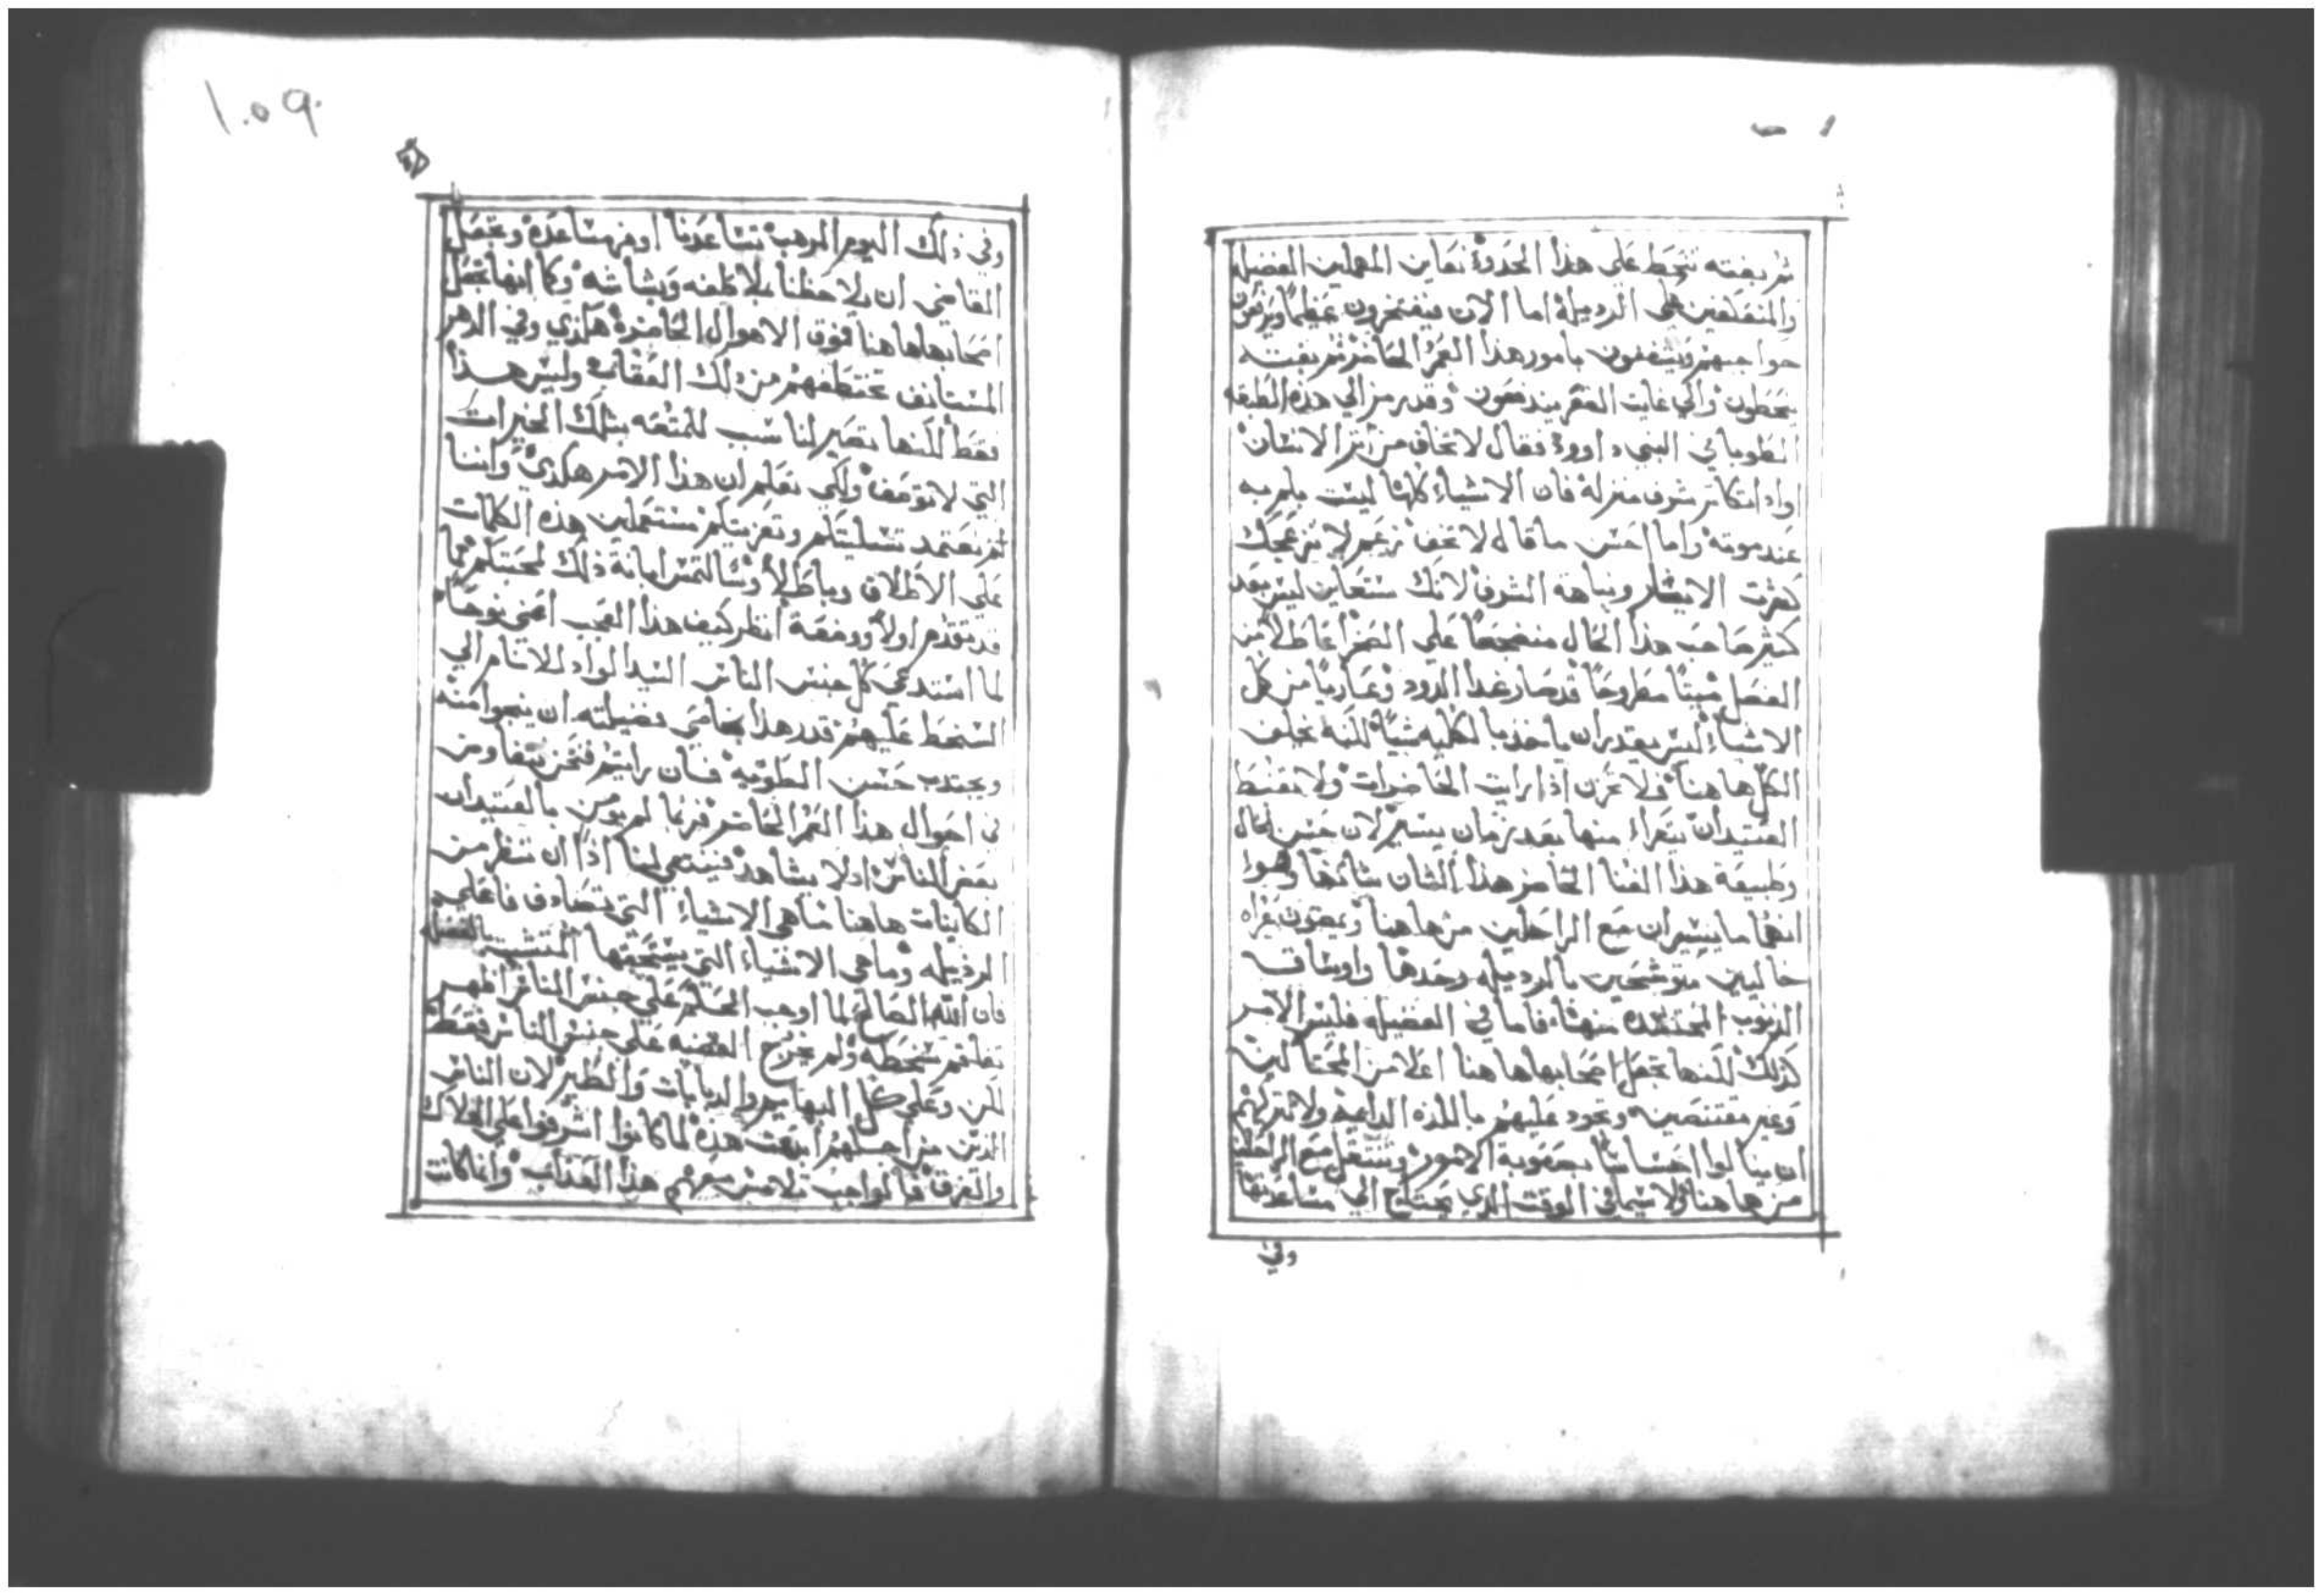 ثم بغته تنحط على هذا الحدود نعاين المهملين الفضيله
والمنعكفين على الرديله اما الان فيفتخرون عظيماً ويرفعون
حواجبهم ويشغفون بامور هذا العمر الحاضر ثم بغته
ينحطون والي غايت الفقر يندفعون وقد يرمز الي هذه الطبقه
الطوباني النبي داوود فقال لا تخاف من اثر الانسان
واذا تكاتر شرف منزله فان الاشياء كلها ليست يلم به
عند موته واما احسن ما قال لا تخف زعم لا تزعجك
كثرت الايسار ونباهة الشرف لانك ستعاين ليس بعد
كثير صاحب هذا الحال منضجعاً على الصخر عاطلاً من
الفصل ميتاً مطروحاً قد صار غدا الدود وعارياً من كل
الاشياء ليس يقدر ان ياخذ بالكليه شياً لكنه يخلف
الكل هاهنا ولا تحزن اذا رايت الحاضرات ولا تغبط
العتيد ان يتعراء منها بعد زمان يسير لان حسن الحال
وطبيعة هذا الغنا الحاضر هذا الشان شانها وهوا
انهما ما يسيران مع الراحلين من هاهنا ويمضون عراه
خاليين متوشحين بالرديله وحدها واوساق
الدنوب المحتشده منها فاما في الفضيله فليس الامر
كذلك لكنها تجعل اصحابها هاهنا اعلا من المحتالين
وغير مقتنصين وتجود عليهم باللذه الدايمه ولا تتركهم
ان ينالوا احساساً بصعوبة الامور وتنتقل مع الراحلين
من هاهنا ولا سيما في الوقت الذي يحتاج الي مساعدتها
وفي
١٠٥٩
وفي ذلك اليوم المرهب تساعدنا اوفر مساعدة وتجعل
القاضي ان يلاحظنا بملاطفه وبشاشه وكما انها تجعل
اصحابها هاهنا فوق الاهوال الحاضرة هكذي وفي الدهر
المستانف تختطفهم من ذلك العقاب وليس هذا
فقط لكنها تصير لنا سبب للمتعه بتلك الخيرات
التي لا توصف ولكي تعلم ان هذا الامر هكذي واننا
لم نعتمد تسليتكم وتعزيتكم مستعملين هذه الكلمات
على الاطلاق وباطلاً وسالتمس ابانة ذلك لمحبتكم مما
قد تقدم اولاً ووضعه انظر كيف هذا العجب اعني نوحاً
لما استدعي كل جنس الناس السيد الواد للانام الي
السخط عليهم قدر هذا بخاصي فضيلته ان ينجوا منه
ويجتدب حسن الطويه فان رايتم فنحن نتفاوض
في احوال هذا العمر الحاضر فربما لم يومن بالعتيدات
بعض الناس اولا يشاهد فينبغي لنا اذاً ان ننظر من
الكاينات هاهنا ما هي الاشياء التي تصادف فاعلي
الرذيله وما هي الاشياء التي يستحقها المتشبت بالفضل
فان الله الصالح لما اوجب الحكم على جنس الناس اظهر
تفاقم سخطه ولم يخرج القضيه على جنس الناس فقط
لكن وعلى كل البهايم والدبابات والطير لان الناس
الذين من اجلهم ابدعت هذه لما كانوا اشرفوا على الهلاك
والغرق فالواجب تلامس معهم هذا العذاب وانما كانت